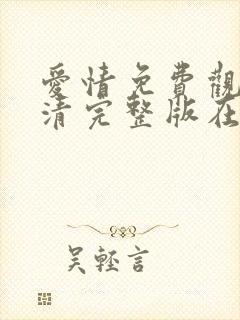 愛情免費觀
清完整版在
吴輕言